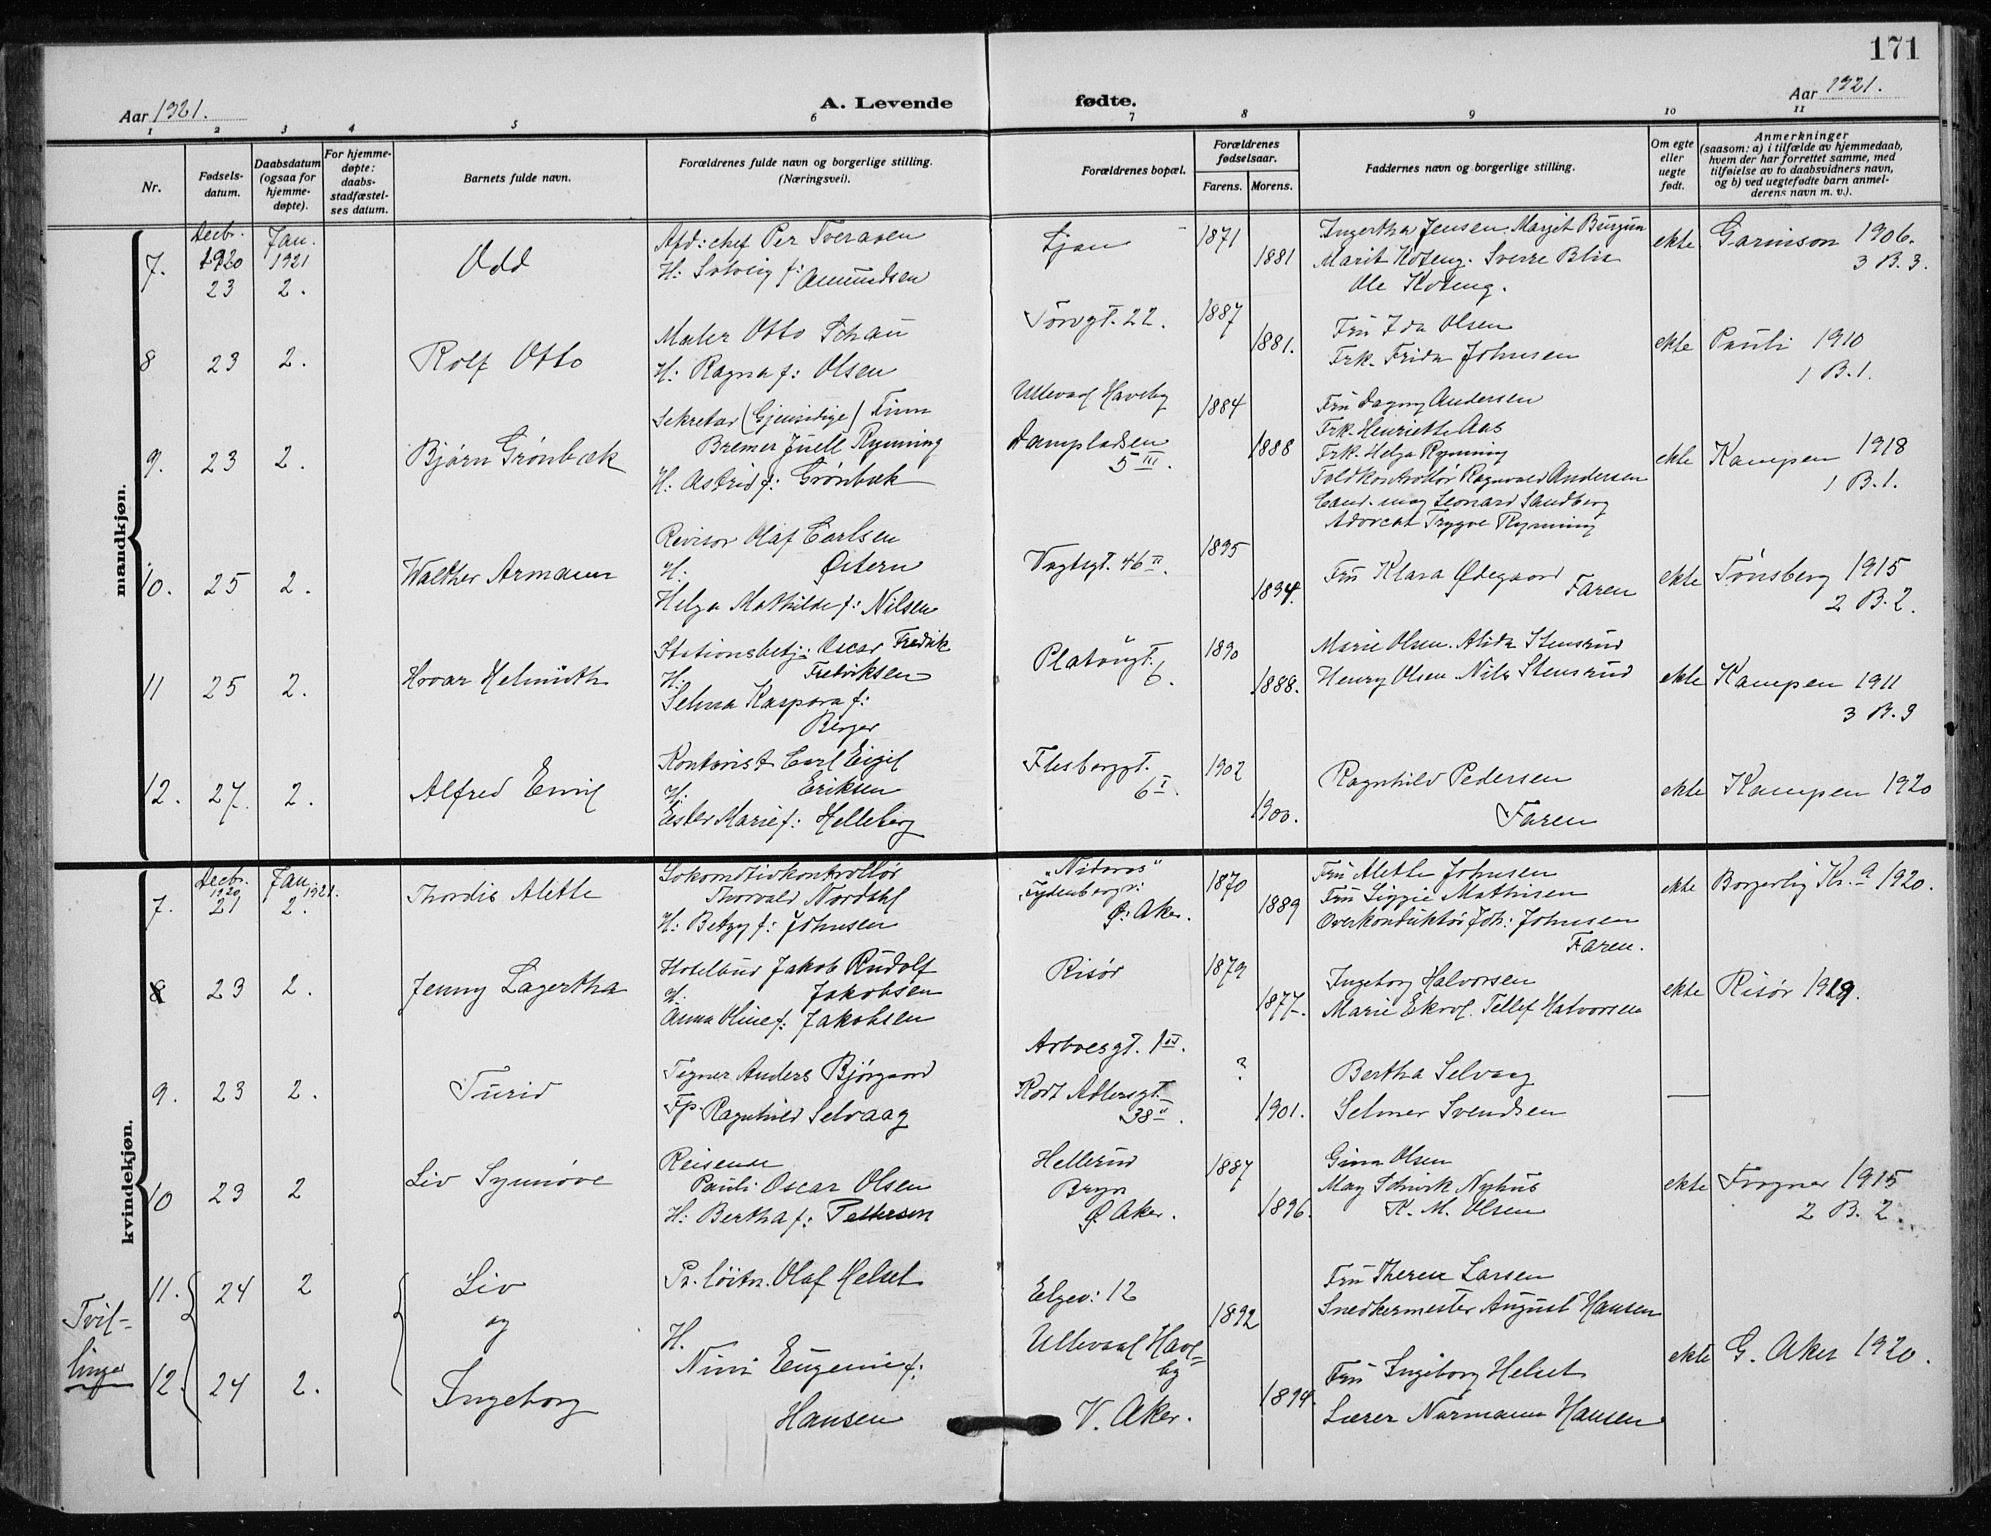 171
Aar 1921.
A. Levende fødte.
Aar 1921.
1 2 3 4 5 6 7 8 9 10 11
Nr.
Fødsels-
datum.
Daabsdatum
(ogsaa for
hjemme-
døpte).
For hjemme-
døpte:
daabs-
stadfæstel-
ses datum.
Barnets fulde navn.
Forældrenes fulde navn og borgerlige stilling.
(Næringsvei).
Forældrenes bopæl.
Forældrenes
fødselsaar.
Farens. Morens.
Faddernes navn og borgerlige stilling.
Om egte
eller
uegte
født.
Anmerkninger
(saasom: a) i tilfælde av hjemmedaab,
hvem der har forrettet samme, med
tilføielse av to daabsvidners navn,
og b) ved uegtefødte barn anmel-
derens navn m. v.).
mandkjøn.
7.
Decbr.
1920
23
Jan.
1921
2.
Odd
Afd: chef Per Tveraaen
H: Solveig f: Amundsen
Ljan
1871
1881
Ingertha Jensen Margit
Marit Koteng. Sverre Blix
Ole Koteng.
ekte
Garnison 1906.
3 B. 3.
8
23
2.
Rolf Otto
Maler Otto Schau
H: Ragna f: Olsen
Torvgt. 22.
1887
1881.
Fru Ida Olsen
Frk. Frida Johnsen
ekte
Pauli 1910
1 B. 1.
9.
23
2.
Bjørn Grønbæk
Sekretær (Gjensidige) Finn
Bremer Juell Rynning
H: Astrid f: Grønbæk
Ullevaal Haveby
Damplassen
5 III.
1884
1888
Fru Dagny Andersen
Frk. Henriette Aas
Frk. Helga Rynning
Toldkontrollør Ragnvald Andersen
Cand. mag Leonard Sandberg
Advocat Trygve Rynning
ekte
Kampen 1918
1 B. 1.
10.
25
2.
Walther Armann
Revisor Olaf Carlsen
H: Østern
Helga Mathilde f: Nilsen
Vogtsgt. 46 II.
1895
1894.
Fru Klara Ødegaard
Faren
ekte
Tønsberg 1915
2 B. 2.
11
25
2.
Hroar Helmuth
Stationsbetj: Oscar Fredrik
H: Fredriksen
Selma Kaspara f:
Berger
Platougt.
6.
1890
1888.
Marie Olsen. Alida Stensrud
Henry Olsen Nils Stensrud
ekte
Kampen 1911
3 B. 3
12.
27.
2.
Alfred Emil
Kontorist Carl Eigil
H: Eriksen
Ester Marie f: Helleberg
Flesberggt.
6 I.
1902
1900.
Ragnhild Pedersen
Faren
ekte
Kampen 1920
kvindekjøn.
7.
Decbr.
1920
21
Jan.
1921.
2.
Thordis Alette
Lokomotivkontrollør
Thorvald Nordahl
H: Betzy f: Johnsen
"Nidaros"
Tydenbergv:
Ø: Aker.
1870
1889
Fru Alette Johnsen
Fru Siggie Mathisen
Overkonduktør Joh: Johnsen
Faren.
ekte
Borgerlig Kr.a 1920.
8
23
2.
Jenny Lagertha
Hotelbud Jakob Rudolf
H: Jakobsen
Anna Oline f: Jakobsen
Risør
1879
1877.
Ingeborg Halvorsen
Marie Ekrol. Tellef Halvorsen
ekte
Risør 1919.
9.
23
2.
Turid
Tegner Anders Bjørgaard
Fp. Ragnhild Selvaag
Arboesgt. 1 III.
Kort Adlersgt.
38 II.
?
1901.
Bertha Selvaag
Selmer Svendsen
—
10
23
2
Liv Synnøve
Reisende
Pauli Oscar Olsen
H: Bertha f: Pettersen
Hellerud
Bryn
Ø. Aker.
1887
1896.
Gina Olsen
May Schurk Nyhus
K. M. Olsen
ekte
Frogner 1915
2 B. 2.
Tvil-
linger
11.
24
2
Liv
og
12.
24
2.
Ingeborg
Pr. løitn. Olaf Helset
H.
Ninni Eugenie f:
Hansen
Elgev: 12
Ullevaal Have-
by
V. Aker.
1892
1894.
Fru Therese Larsen
Snedkermester August Hansen
Fru Ingeborg Helset
Lærer Normann Hansen
ekte
G. Aker 1920.